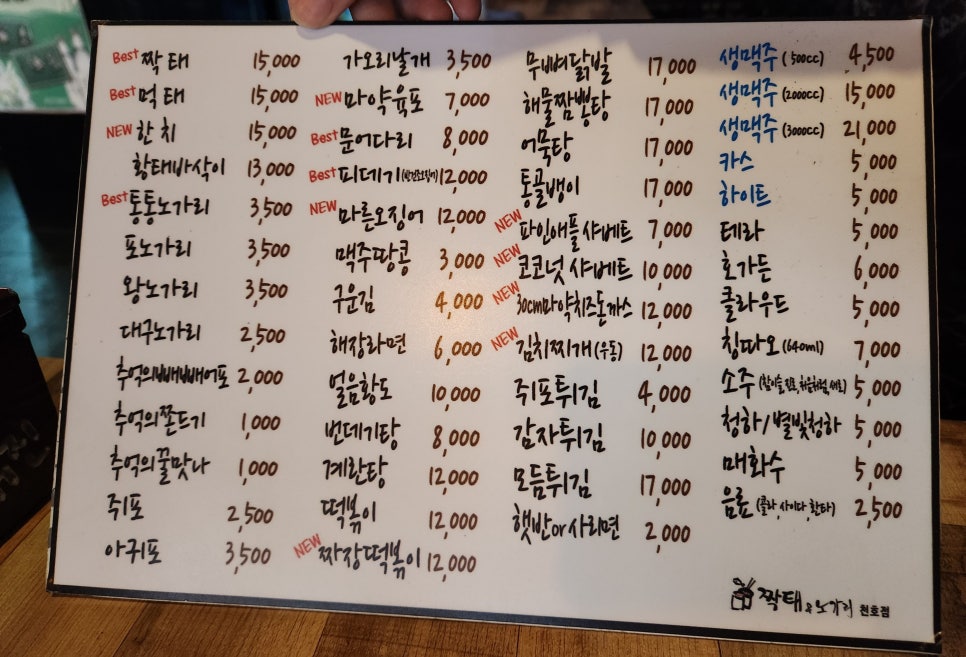 Best 짝태 15,000
Best 먹태 15,000
NEW 한치 15,000
황태바삭이 13,000
Best 통통노가리 3,500
포노가리 3,500
왕노가리 3,500
대구노가리 2,500
추억의빼빼어포 2,000
추억의쫀드기 1,000
추억의꿀맛나 1,000
쥐포 2,500
아귀포 3,500
가오리날개 3,500
NEW 마약육포 7,000
Best 문어다리 8,000
Best 피데기(반건조오징어) 12,000
NEW 마른오징어 12,000
맥주땅콩 3,000
구운김 4,000
해장라면 6,000
얼음황도 10,000
번데기탕 8,000
계란탕 12,000
떡볶이 12,000
NEW 짜장떡볶이 12,000
무뼈닭발 17,000
해물짬뽕탕 17,000
어묵탕 17,000
통골뱅이 17,000
NEW 파인애플샤베트 7,000
NEW 코코넛 샤베트 10,000
NEW 30cm마약치즈돈까스 12,000
NEW 김치찌개(우동) 12,000
쥐포튀김 4,000
감자튀김 10,000
모듬튀김 17,000
햇반or사리면 2,000
생맥주(500cc) 4,500
생맥주(2000cc) 15,000
생맥주(3000cc) 21,000
카스 5,000
하이트 5,000
테라 5,000
호가든 6,000
클라우드 5,000
칭따오(640ml) 7,000
소주(참이슬,진로,처음처럼,새로) 5,000
청하/별빛청하 5,000
매화수 5,000
음료(콜라,사이다,환타) 2,500
짝태&노가리 천호점